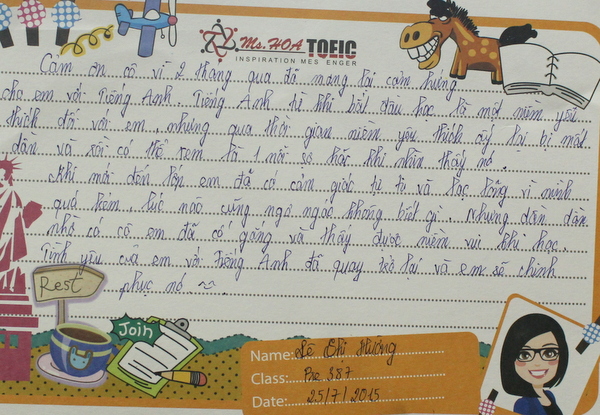 Ms.HOA TOEIC
INSPIRATION MES ENGER
Cảm ơn cô vì 2 tháng qua đã mang lại cảm hứng
cho em với Tiếng Anh. Tiếng Anh từ khi bắt đầu học là một niềm yêu
thích đối với em, nhưng qua thời gian niềm yêu thích ấy lại bị mất
dần và rồi có thể xem là 1 nỗi sợ hãi khi nhìn thấy nó.
Khi mới đến lớp em đã có cảm giác tự ti và lạc lõng vì mình
quá kém, lúc nào cũng ngơ ngác không biết gì. Nhưng dần dần
nhờ có cô em đã cố gắng và thấy được niềm vui khi học.
Tình yêu của em với Tiếng Anh đã quay trở lại và em sẽ chinh
phục nó
Rest
Join
Name: Lê Thị Hường
Class: Pre 387
Date: 25/7/2015